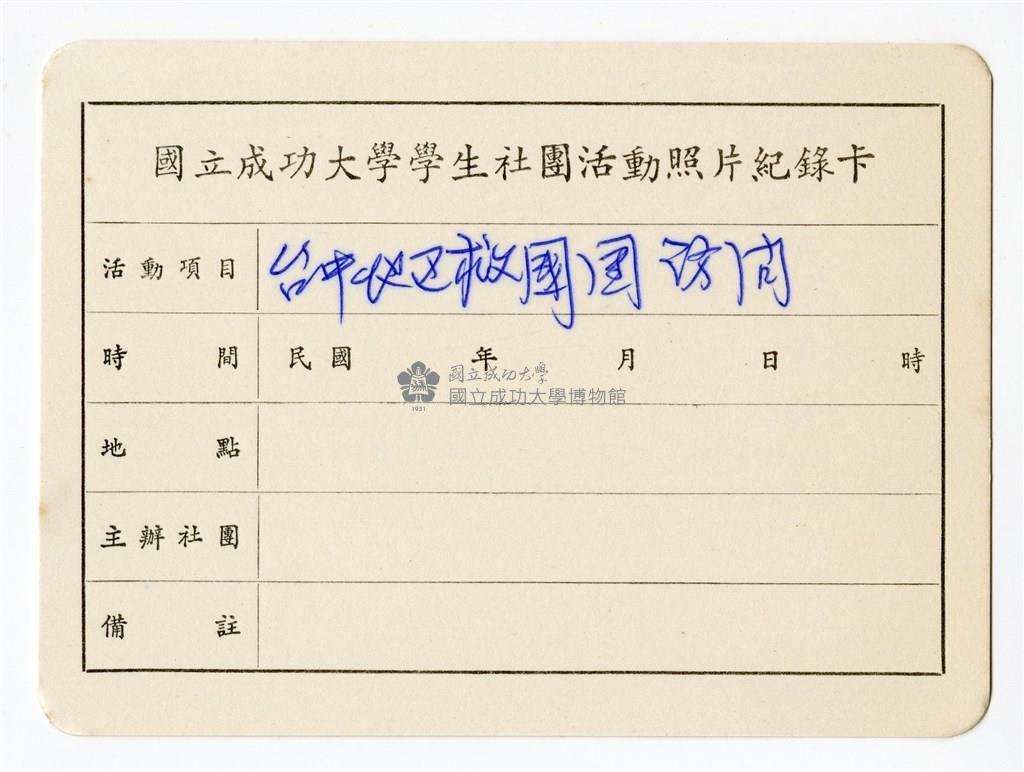 國立成功大學學生社團活動照片紀錄卡
活動項目 台中地区救國团 訪问
時間 民國 年 月 日 時
國立成功大學
國立成功大學博物館
1931
地點
主辦社團
備註